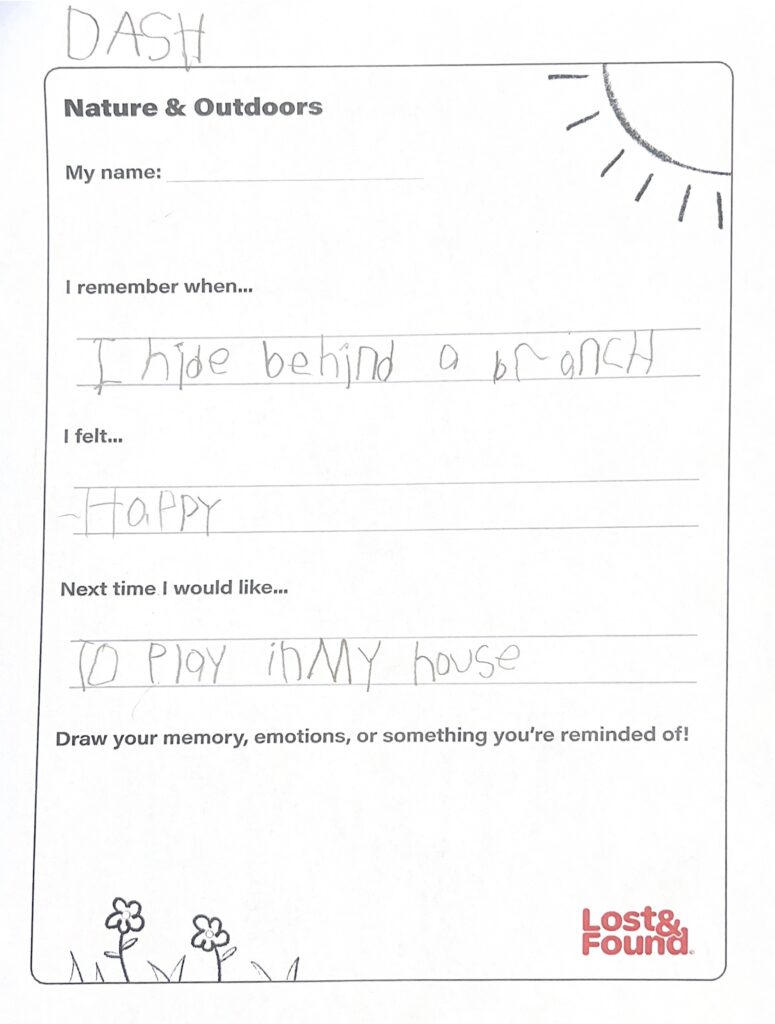 DASH
Nature & Outdoors
My name:
I remember when...
I hide behind a branch
I felt...
Happy
Next time I would like...
TO Play in MY house
Draw your memory, emotions, or something you're reminded of!
Lost&
Found